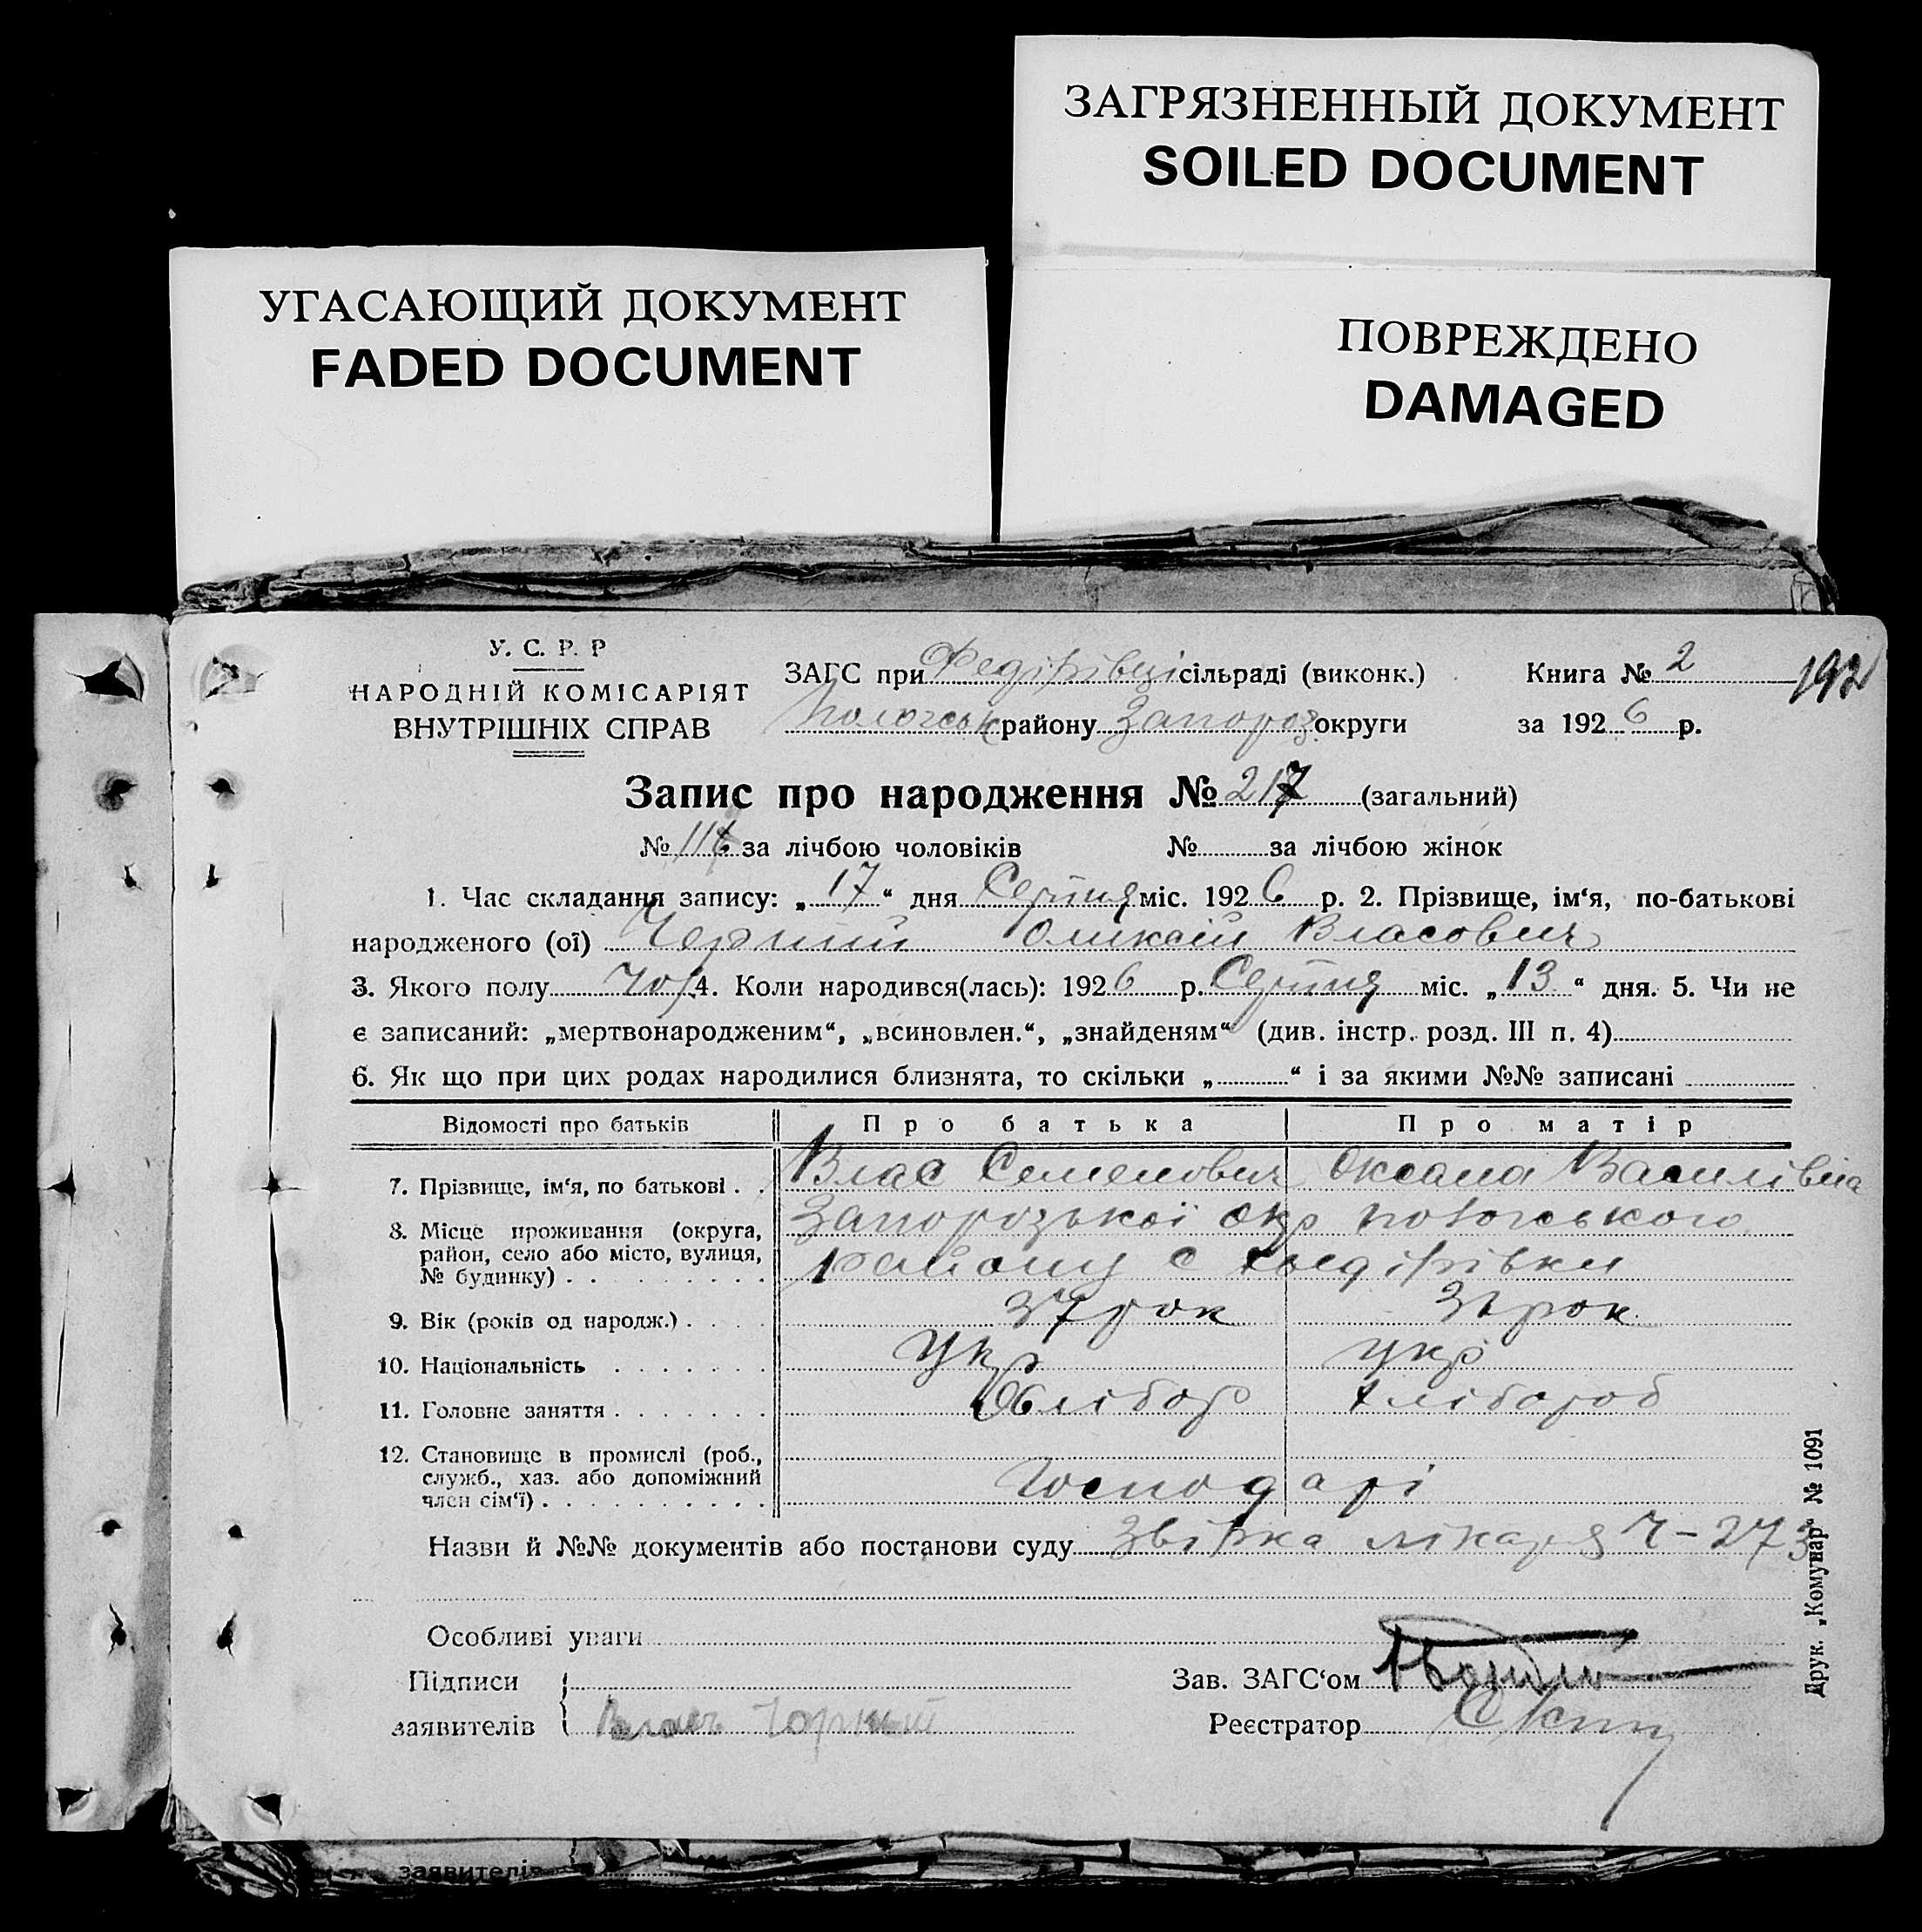 ЗАГРЯЗНЕННЫЙ ДОКУМЕНТ
SOILED DOCUMENT
УГАСАЮЩИЙ ДОКУМЕНТ
FADED DOCUMENT
ПОВРЕЖДЕНО
DAMAGED
У. С. Р. Р
НАРОДНІЙ КОМІСАРІЯТ
ВНУТРІШНІХ СПРАВ
ЗАГС при Федірівці сільраді (виконк.)
Пологськ району Запороз. округи
Книга № 2
за 1926 р.
192
Запис про народження № 217 (загальний)
№ 116 за лічбою чоловіків № за лічбою жінок
1. Час складання запису: „17“ дня Серпня міс. 1926 р. 2. Прізвище, ім‘я, по-батькові
народженого (ої) Чорний Олексій Власович
3. Якого полу чол 4. Коли народився(лась): 1926 р. Серпня міс. „13“ дня. 5. Чи не
є записаний: „мертвонародженим“, „всиновлен.“, „знайденям“ (див. інстр. розд. III п. 4)
6. Як що при цих родах народилися близнята, то скільки „ “ і за якими №№ записані
Відомості про батьків Про батька Про матір
7. Прізвище, ім‘я, по батькові . . Влас Семенович Оксана Василівна
8. Місце проживання (округа,
район, село або місто, вулиця,
№ будинку) . . . . . . . . .
Запорозької окр Пологського
району с Федірівки
9. Вік (років од народж.) . . . . 37 рок рок
10. Національність . . . . . . Укр укр
11. Головне заняття . . . . . . . Хлібор хлібороб
12. Становище в промислі (роб.,
служб., хаз. або допоміжний
член сім‘ї) . . . . . . . . . .
Господарі
Назви й №№ документів або постанови суду Звірка лікаря Ч-273
Особливі уваги
Підписи
заявителів Влас Чорний
Зав. ЗАГС‘ом
Реєстратор
Друк. „Комунар“ № 1091
заявителів